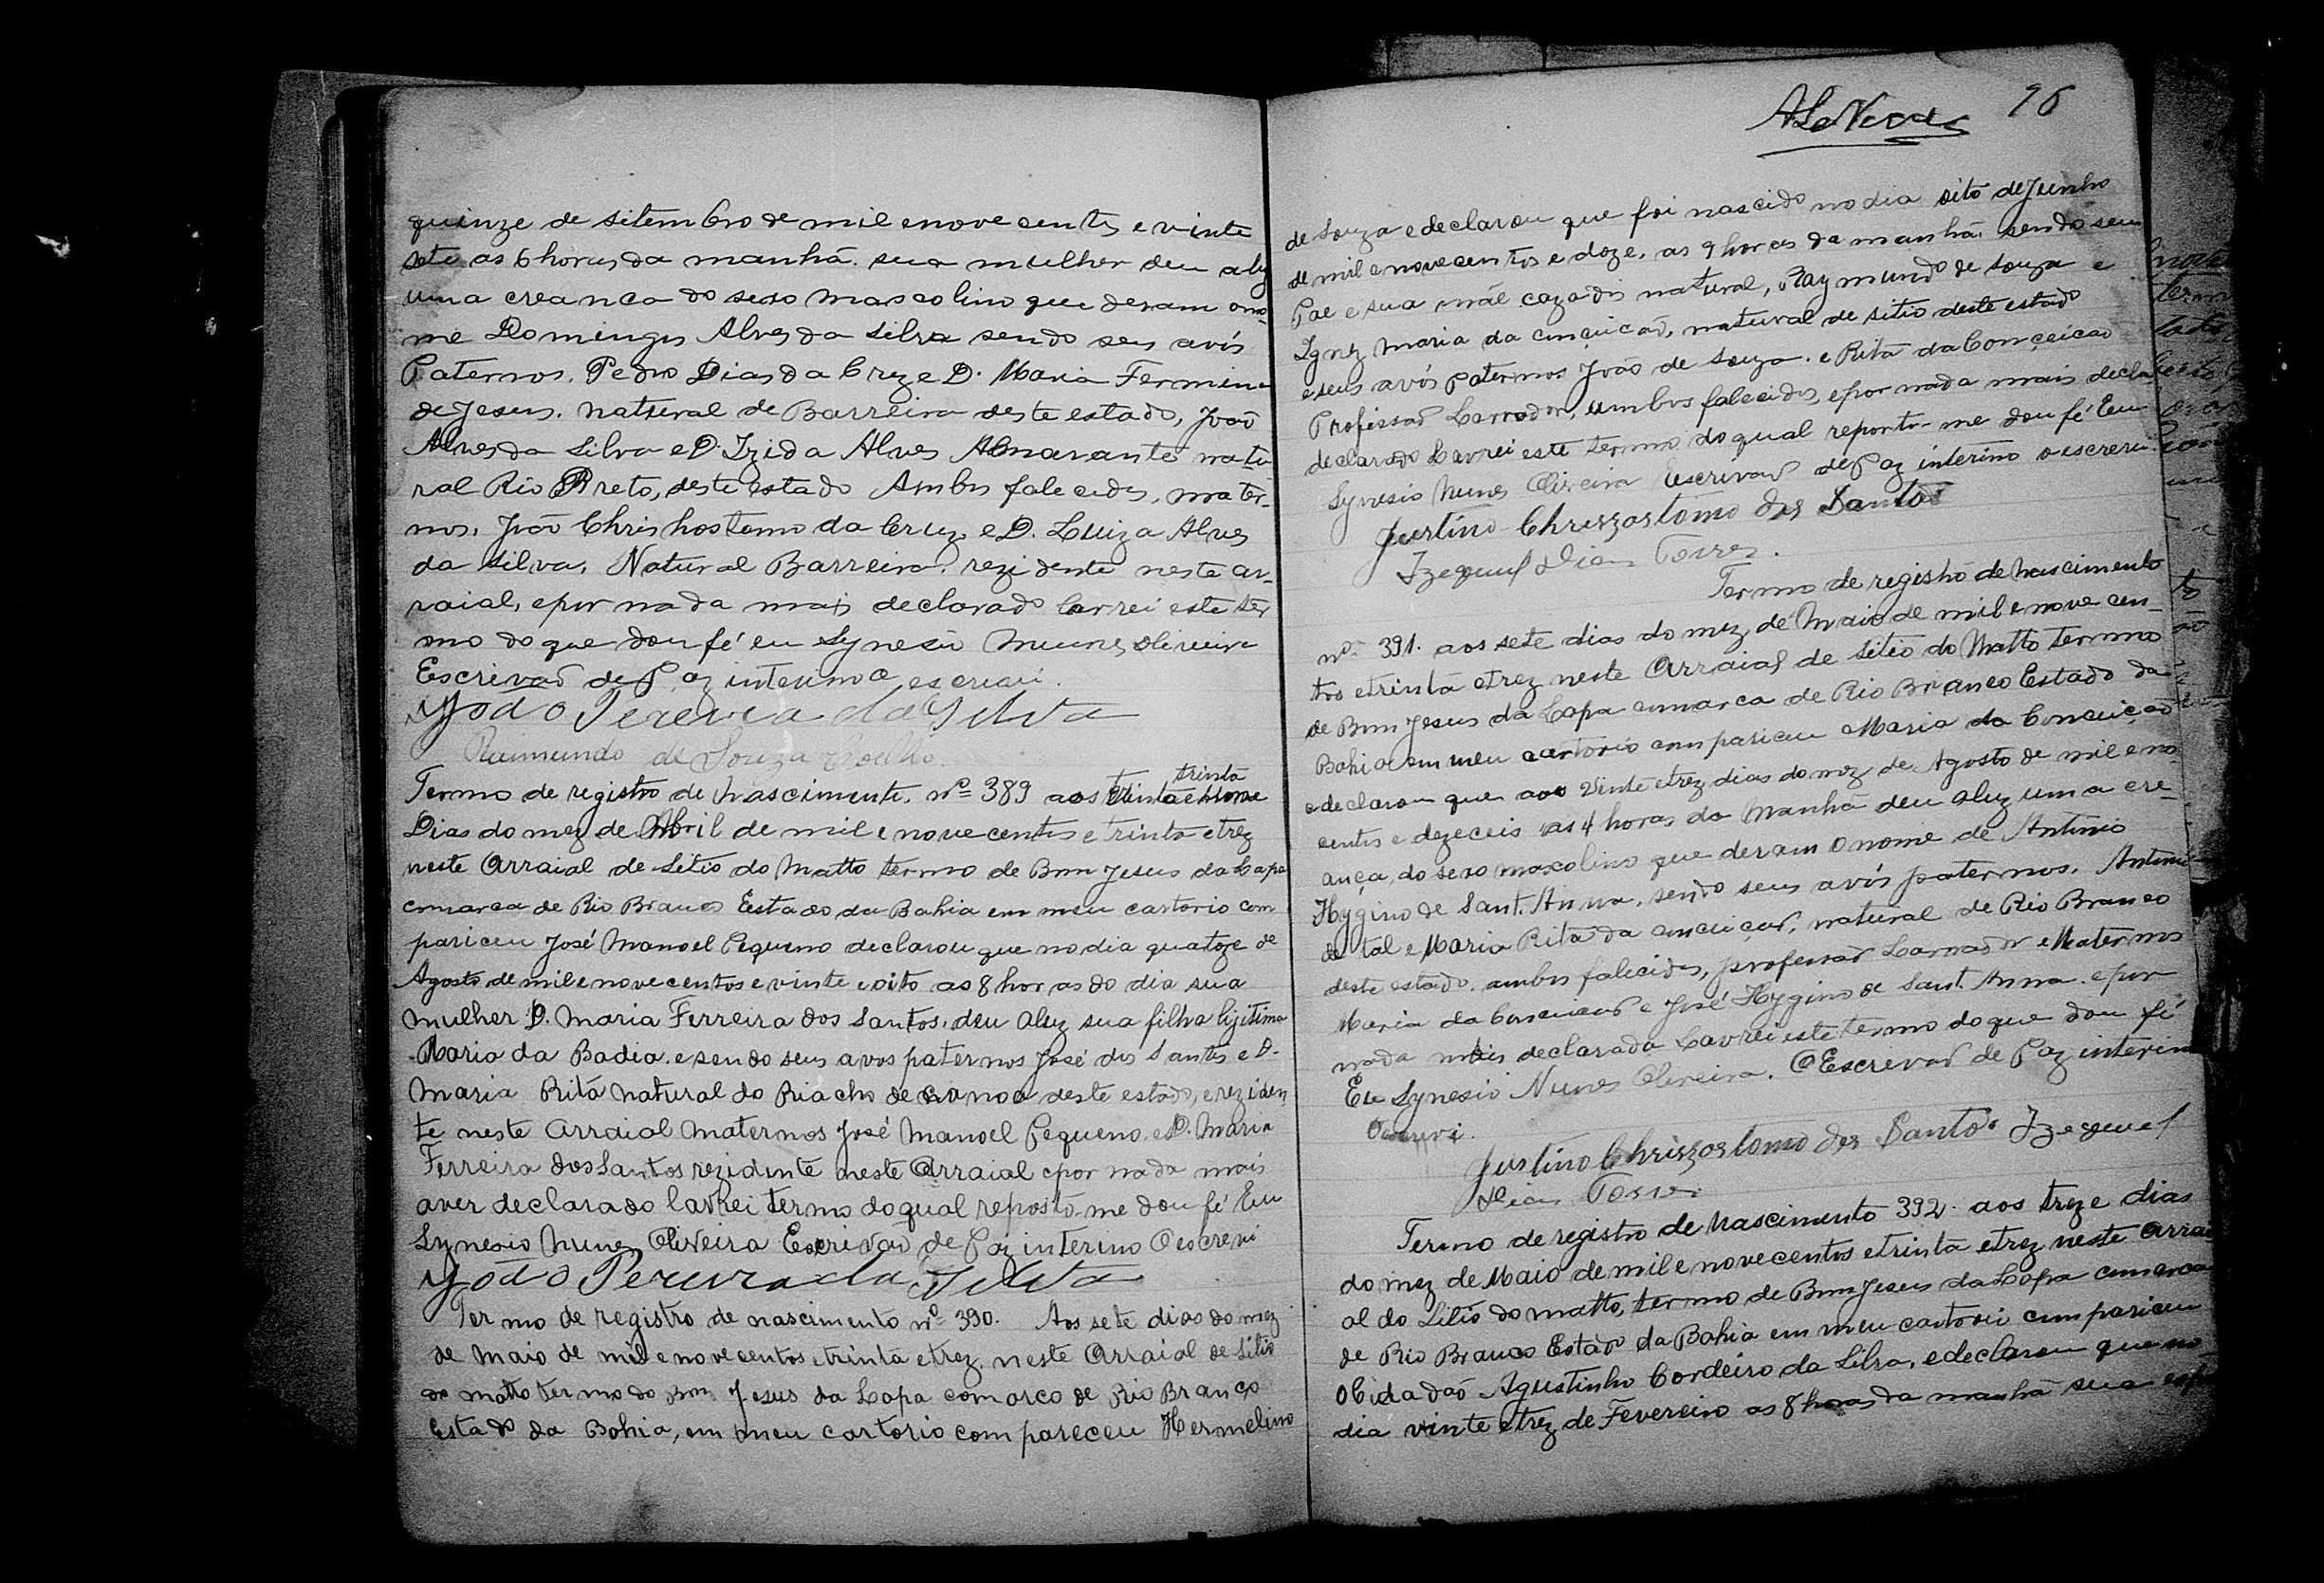 quinze de sitembro de mil e nove centos e vinte
sete as 6 horas da manhã. sua mulher deu a luz
uma creanca do sexo mascolino que deram o no-
me Domingos Alves da Silva sendo seus avós
Paternos. Pedro Dias da Cruz e D. Maria Fermina
de Jesus. natural de Barreira deste estado, João
Alves da Silva e D. Izida Alves natu
ral Rio Preto, deste estado Ambos falecidos, mater-
nos, João Chrishostomo da Cruz e D. Luiza Alves
da Silva, Natural Barreira. rezidente neste ar-
raial, e por nada mais declarado larrei este ter
mo do que dou fé eu Synesio Nunes Oliveira
Escrivaõ de Paz interino o escrevi.
João Pereira da Silva
Raimundo de Souza Coelho
Termo de registro de Nascimento. nº 389 aos trinta
Dias do mez de Abril de mil e nove centos e trinta e trez
neste Arraial de Sitio do Matto termo de Bom Jesus da Lapa
comarca de Rio Branco Estado da Bahia em meu cartorio com
pariceu José Manoel Pequeno declarou que no dia quatoze de
Agosto de mil e nove centos e vinte e oito as 8 horas do dia sua
mulher D. Maria Ferreira dos Santos. deu a luz sua filha lijitima
Maria da Badia. e sendo seus avos paternos José dos Santos e D.
Maria Ritá natural do Riacho de canoa deste estado, ereziden
te neste Arraial Maternos José Manoel Pequeno. e D. Maria
Ferreira dos Santos rezidente neste Arraial e por nada mais
aver declarado lavrei termo do qual reposto-me dou fé Eu
Synesio Nunes Oliveira Escrivaõ de Paz interino O escrevi
João Pereira da Silva
Termo de registro de nascimento nº 390. Aos sete dias do mez
de Maio de mil e nove centos e trinta e trez. neste Arraial de Sitio
do matto termo do Bom Jesus da Lapa comarca de Rio Branco
Estado da Bahia, em meu cartorio compareceu Hermelino
96
de Souza e declarou que foi nascido no dia oito de Junho
de mil e nove centos e doze. as 9 horas da manhã. sendo seu
Pae e sua mãe cazados natural, Raymundo de Souza e
Ignez Maria da Conçeicaõ, natural de sitio deste estado
e seus avós paternos João de Souza. e Rita da Conçeicaõ
Profissaõ Larrador, ambos falecidos, e por nada mais decla
declarado Lavrei este termo do qual reporto-me dou fé Eu
Synesio Nunes Oliveira Escrivaõ de Paz interino o escrevi
Justino Chrizzostomo dos Santos
Izequiel Dias Torres.
Termo de registro de Nascimento
nº 391. aos sete dias do mez de Maio de mil e nove cen-
tos e trinta e trez neste Arraial de Sitio do Matto termo
de Bom Jesus da Lapa comarca de Rio Branco Estado da
Bahia em meu cartorio compariceu Maria da Conceiçaõ
e declarou que aos vinte e trez dias do mez de Agosto de mil e no
centos e dezeceis as 4 horas da Manhã deu a luz uma cre-
ança, do sexo mascolino que deram o nome de Antonio
Hygino de Sant. Anna, sendo seus avós paternos. Antonio
de tal e Maria Rita da conceiçaõ, natural de Rio Branco
deste estado. ambos falecidos, profersaõ Larrador e Maternos
Maria da Conceicaõ e José Hygino de Sant. Anna. e por
nada mais declarada Lavrei este termo do que dou fé
Eu Synesio Nunes Oliveira. O Escrivaõ de Paz interino
O escrevi.
Justino Chrizzostomo dos Santos Izequiel
Dias Torres
Termo de registro de Nascimento 392. aos treze dias
do mez de Maio de mil e novecentos e trinta e trez neste Arrai
al do Sitio do matto, termo de Bom Jesus da Lapa comarca
de Rio Branco Estado da Bahia em meu cartorio compariceu
o Cidadaõ Agustinho Cordeiro da Silva. e declarou que no
dia vinte e trez de Fevereiro as 8 horas da manhã sua